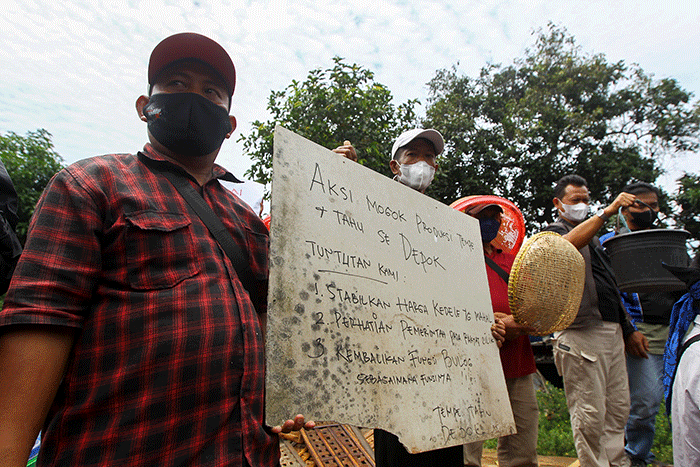 AKSI MOGOK PRODUKSI TEMPE
+ TAHU SE DEPOK
TUNTUTAN KAMI
1. STABILKAN HARGA KEDELE YG MAHAL
2. PERHATIAN PEMERINTAH PARA
3 KEMBALIKAN FUNGSI BULOG
SEBAGAIMANA FUNGINYA
TEMPE TAHU
DEPOK